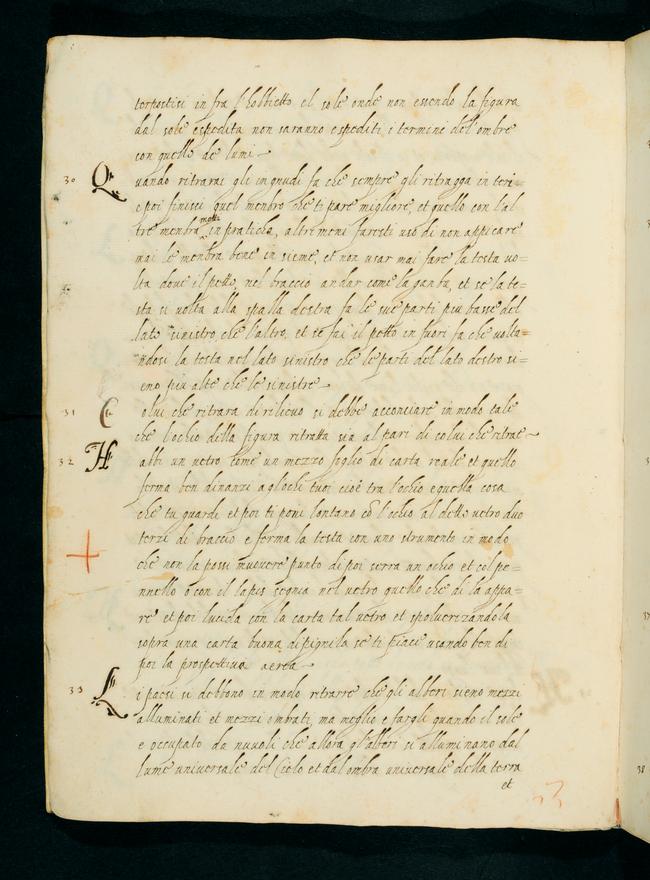 terpostisi in fra l'hobbietto el sole onde non essendo la figura
dal sole espedita non saranno espediti i termini del ombre
con quelle de lumi
30 Quando ritrarai gli ingnudi fa che sempre gli ritragga interi
e poi finisci quel menbro che ti pare migliore, et quello con l'al
tre menbra metti in praticha, altrimeni faresti uso di non appicare
mai le menbra bene in sieme, et non usar mai fare la testa uo=
lta doue il petto, nel braccio andar come la ganba, et se la te=
sta si uolta alla spalla destra fa le sue parti piu basse del
lato sinistro che l'altro, et se fai il petto in fuori fa che uolta=
ndosi la testa nel lato sinistro che le parti del lato destro si=
eno piu alte che le sinistre
31 Colui che ritrara di rilieuo si debbe acconciare in modo tale
che l'ochio della figura ritratta sia al pari di colui che ritrae
32 Habbi un uetro come un mezzo foglio di carta reale et quello
ferma ben dinanzi a gl'ochi tuoi cioè tra l'ochio e quella cosa
che tu guardi et poi ti poni lontano cō l'ochio al detto uetro duo
terzi di braccio e ferma la testa con uno strumento in modo
che non la possi muouere punto di poi serra un ochio et col pe=
nnello o con il lapis segnia nel uetro quello che di la appa=
re et poi lucida con la carta tal uetro et spoluerizandola
sopra una carta buona dipignila se ti piace usando ben di
poi la prospettiua aerea
33 Li paesi si debbono in modo ritrarre che gli alberi sieno mezzi
alluminati et mezzi ombrati, ma meglio e fargli quando il sole
e occupato da nuuoli che allora gl'alberi si alluminano dal
lume uniuersale del Cielo et dal ombra uniuersale della terra
et